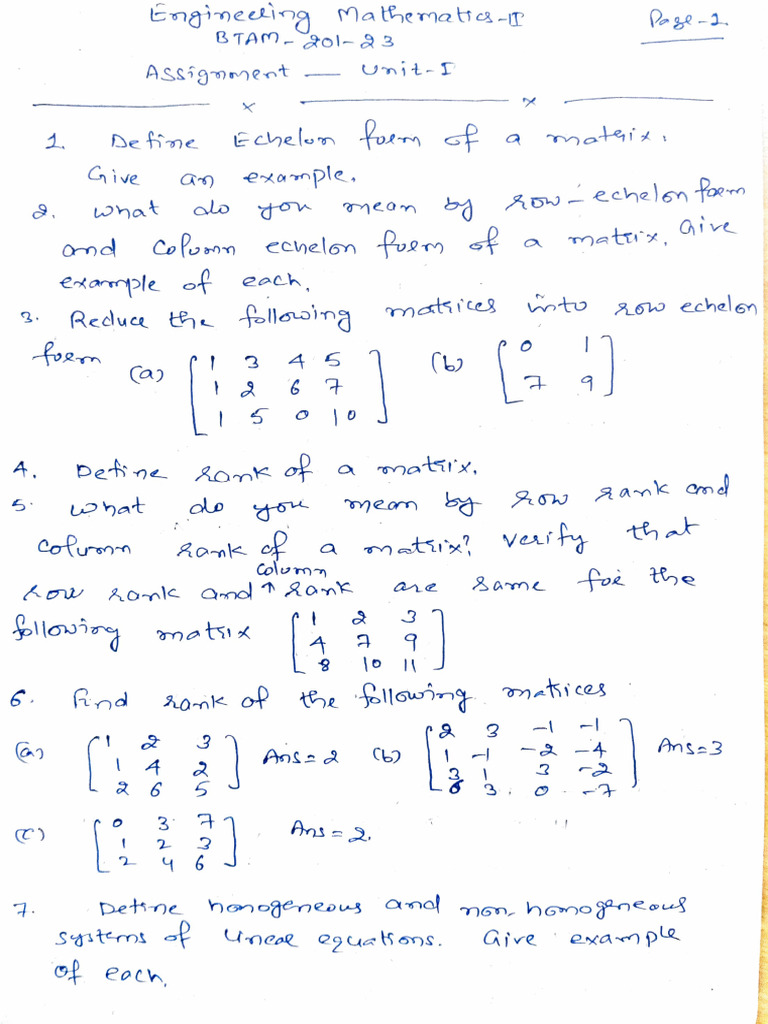 Engineering Mathematics-II Page-1
BTAM-201-23
Assignment — Unit-I
1. Define Echelon form of a matrix.
Give an example.
2. What do you mean by row-echelon form
and column echelon form of a matrix. Give
example of each.
3. Reduce the following matrices into row echelon
form (a) [1 3 4 5 (b) [0 1
1 2 6 7 7 9]
1 5 0 10]
4. Define rank of a matrix.
5. What do you mean by row rank and
column rank of a matrix? Verify that
row rank and ↑ column rank are same for the
following matrix [1 2 3
4 7 9
8 10 11]
6. Find rank of the following matrices
(a) [1 2 3 Ans=2 (b) [2 3 -1 -1 Ans=3
1 4 2 1 -1 -2 -4
2 6 5] 3 1 3 -2
6 3 0 -7]
(c) [0 3 7 Ans=2.
1 2 3
2 4 6]
7. Define homogeneous and non-homogeneous
systems of linear equations. Give example
of each.